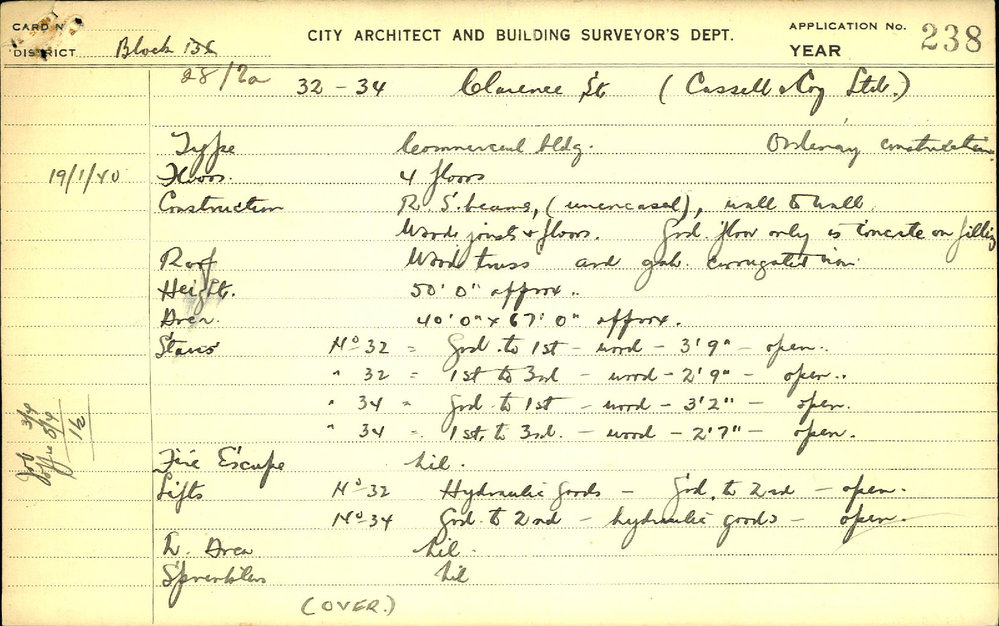 CARD No
DISTRICT Block 138
CITY ARCHITECT AND BUILDING SURVEYOR'S DEPT.
APPLICATION No. 238
YEAR
28/2a 32 - 34 Clarence St (Cassell & Coy Ltd.)
Type Commercial bldg. Ordinary construction.
19/1/40
Floors. 4 floors
Construction R. S. beams, (unencased), wall to wall.
Wood joists & floors. Grd. floor only is concrete on filling
Roof Wood truss and galv. corrugated iron.
Height. 50' 0" approx.
Area. 40' 0" x 67' 0" approx.
Stairs No 32 = Grd. to 1st - wood - 3' 9" - open.
" 32 = 1st to 3rd - wood - 2' 9" - open.
" 34 = Grd. to 1st - wood - 3' 2" - open.
" 34 = 1st. to 3rd. - wood - 2' 7" - open.
Job 3/4
Office 3/4
1½
Fire Escape Nil.
Lifts No 32 Hydraulic Goods - Grd. to 2nd - open.
No 34 Grd. to 2nd - hydraulic goods - open.
L. Area Nil.
Sprinklers Nil
(OVER.)